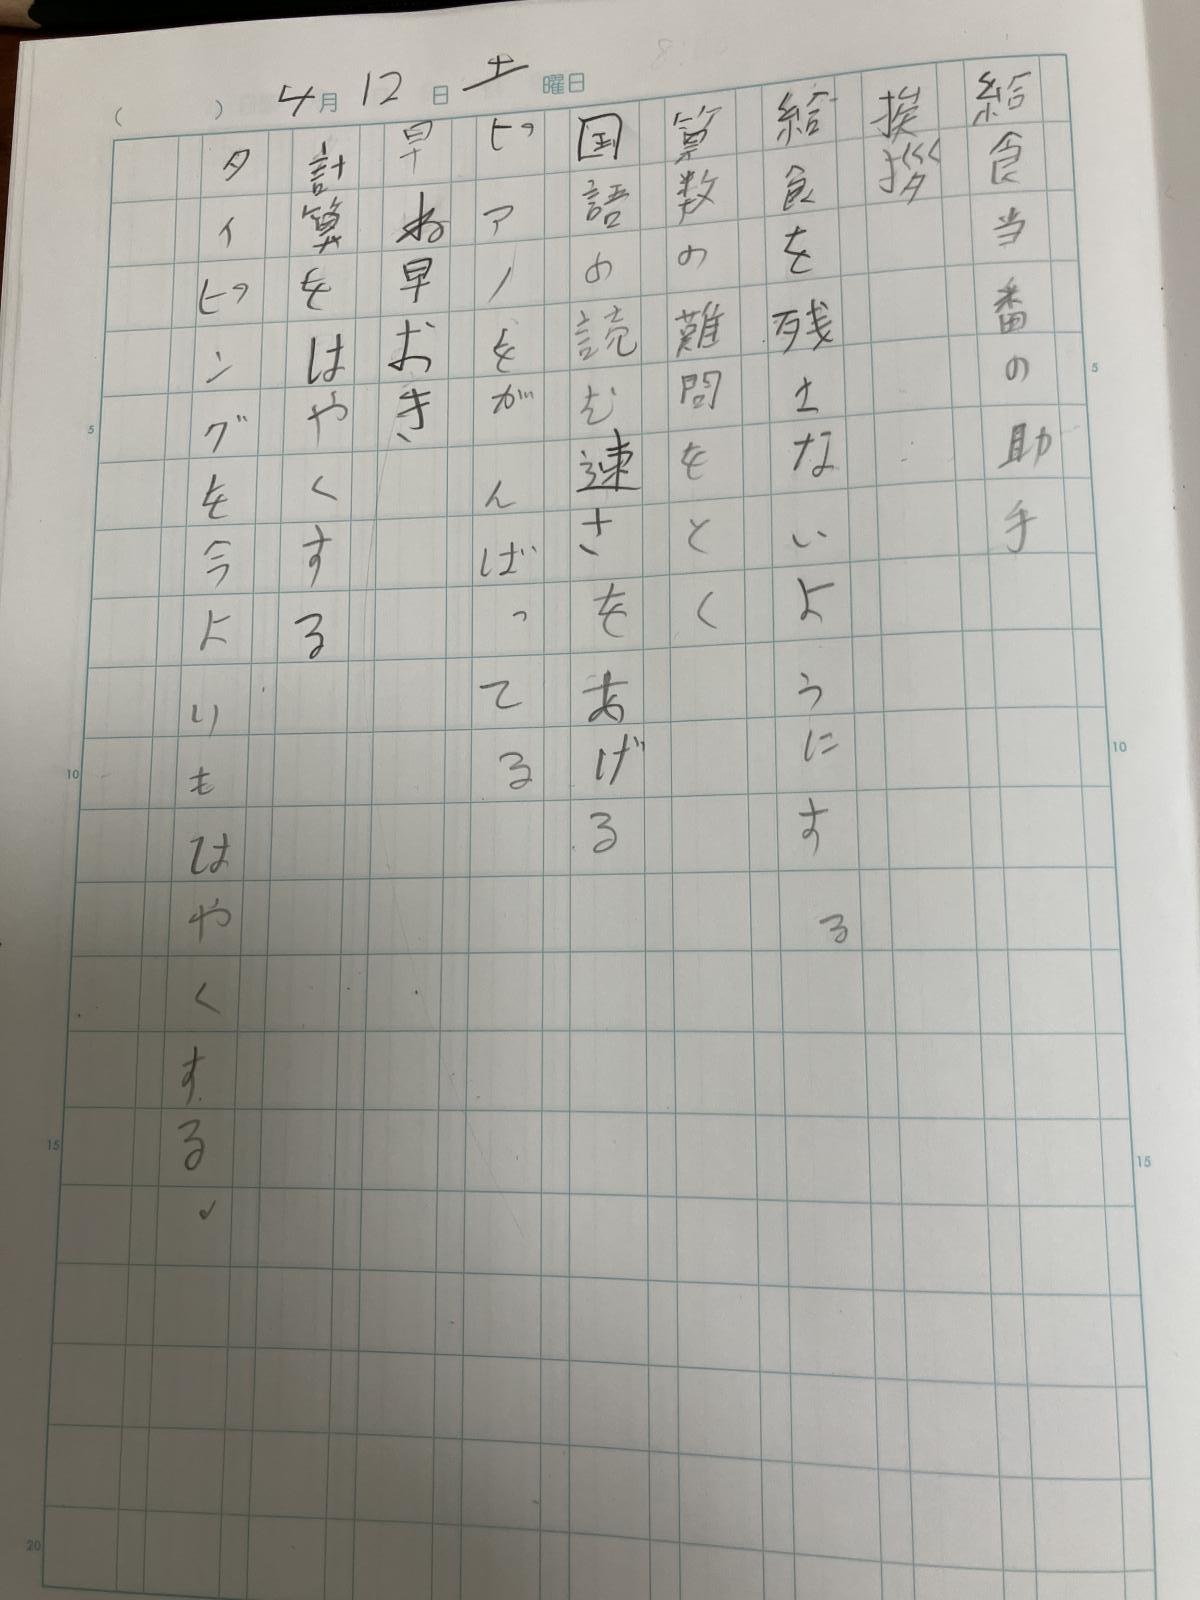 ( ) 4月12日土曜日
給食当番の助手
挨拶
給食を残さないようにする
算数の難問をとく
国語の読む速さをあげる
ピアノをがんばってる
早ね早おき
計算をはやくする
タイピングを今よりもはやくする
5
10
15
5
10
15
20